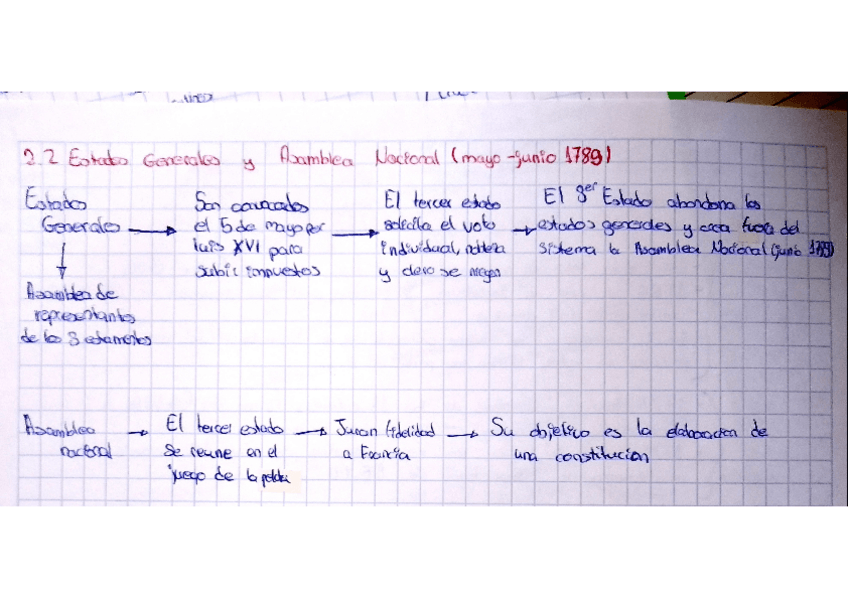 2.2 Estados Generales y Asamblea Nacional (mayo-junio 1789)
Estados
Generales
Asamblea de
representantes
de los 3 estamentos
Son convocados
el 5 de mayo por
luis XVI para
subir impuestos
El tercer estado
solicita el voto
individual, nobleza
y clero se niegan
El 3er Estado abandona los
estados generales y crea fuera del
sistema la Asamblea Nacional (junio 1789)
Asamblea
nacional
El tercer estado
se reune en el
juego de la pelota
Juran fidelidad
a Francia
Su objetivo es la elaboracion de
una constitucion